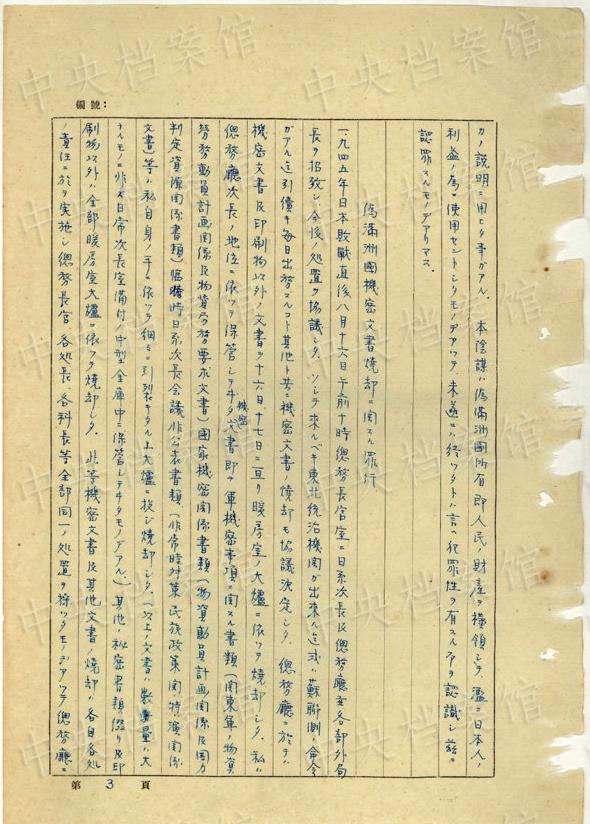 編號：
カノ説明ニ用ヒタ事ガアル. 本陰謀ハ偽滿洲國所有即人民ノ財産ヲ横領シテ濫ニ日本人ノ
利益ノ為ニ使用セントシタモノデアツテ未遂ニハ終ツタトハ言ヘ犯罪性ヲ有スル事ヲ認識シ茲ニ
認罪スルモノデアリマス.
偽滿洲國機密文書燒却ニ関スル罪行
一九四五年日本敗戰直後八月十六日午前十時總務長官室ニ日系次長及總務廳主各部外局
長ヲ招致シ今後ノ処置ヲ協議シタ. ソシテ来ルベキ東北統治機関ガ出来ル迄或ハ蘇聯側ノ命令
ガアル迄引續キ毎日出務スルコト其他ト共ニ機密文書ノ燒却モ協議決定シタ. 總務廳ニ於テハ
機密文書及印刷物以外ノ文書ヲ十六日十七日ニ亘リ暖房室ノ大爐ニ依ツテ燒却シタ. 私ハ
總務廳次長ノ地位ニ依ツテ保管シテヰタ機密文書即チ軍機密事項ニ関スル書類(関東軍ノ物資
労務動員計画関係及物資労務要求文書)國家機密関係書類(物資動員計画関係及国力
判定資源関係書類)臨時日系次長会議非公表書類(非常時対策民族政策関特演関係
文書)等ハ私自身ノ手ニ依ツテ細々ニ引裂キタル上大爐ニ投ジ燒却シタ. (以上ノ文書ハ数量ハ大
ナルモノニ非ズ日常次長室備付ノ中型金庫中ニ保管シテヰタモノデアル)其他ノ秘密書類綴リ及印
刷物以外ハ全部暖房室大爐ニ依ツテ燒却シタ. 此等機密文書及其他文書ノ燒却ハ各自各処
ノ責任ニ於テ実施シ總務長官各処長各科長等全部同一ノ処置ヲ採ツタモノデアツテ總務廳ニ
第 3 頁
中央档案馆